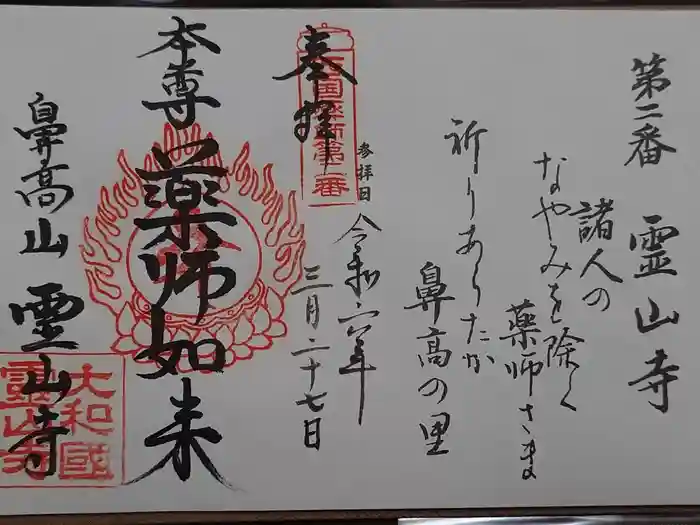 第二番 霊山寺
諸人の
なやみを除く
薬師さま
祈りあらたか
鼻高の里
奉拝
西国薬師第二番
参拝日
令和六年
三月二十七日
本尊 薬師如来
鼻高山 霊山寺
大和國
霊山寺